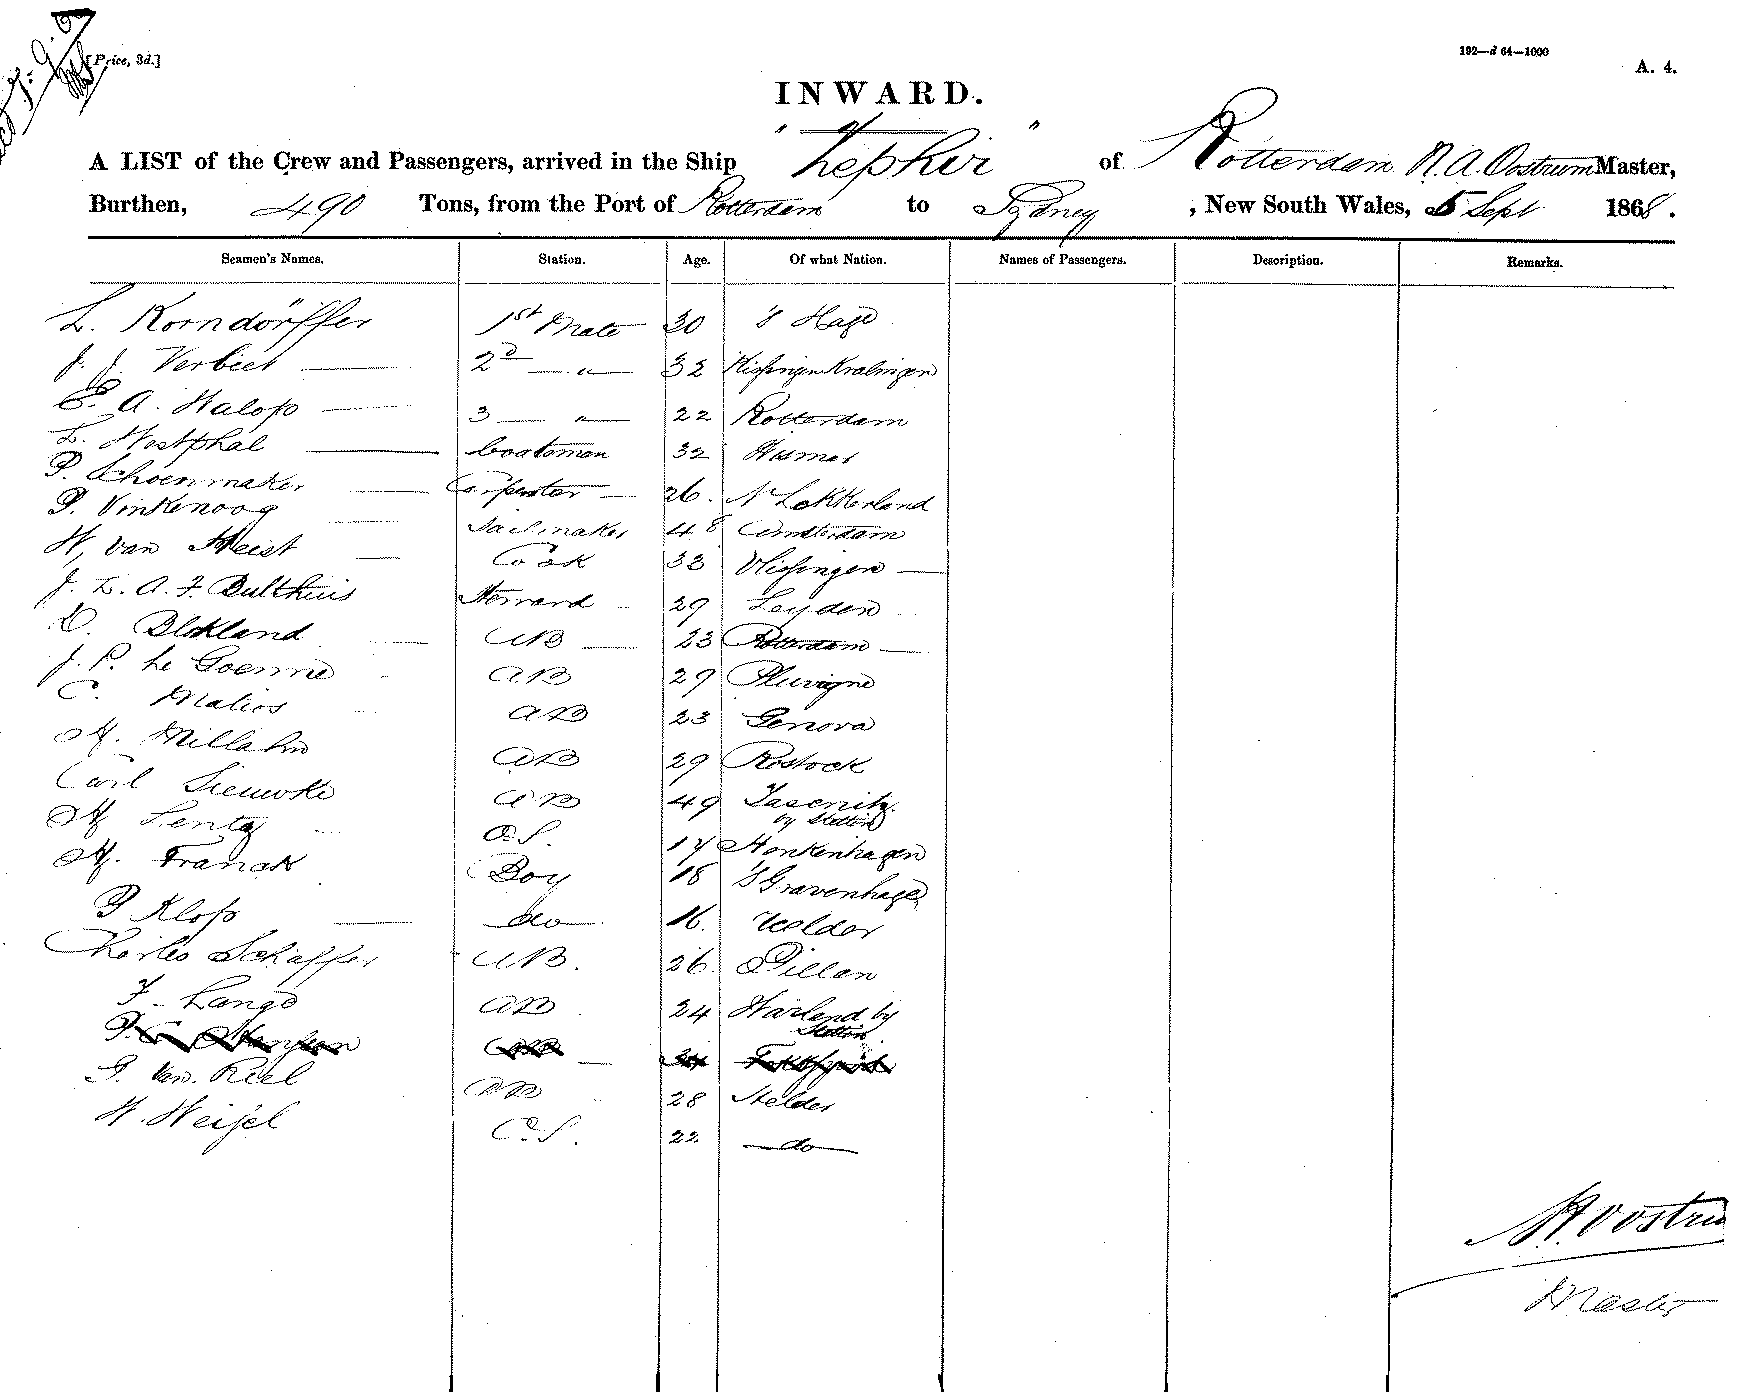 [Price, 3d.]
192—d 64—1000
A. 4.
INWARD.
A LIST of the Crew and Passengers, arrived in the Ship "Zephir" of Rotterdam N. A. Oostrum Master,
Burthen, 490 Tons, from the Port of Rotterdam to Sydney, New South Wales, 5 Sept 1868.
Seamen's Names. Station. Age. Of what Nation. Names of Passengers. Description. Remarks.
L. Korndörffer 1st Mate 30 's Hage
J. J. Verbiest 2d — " — 32 Kralingen
E. A. Walop 3 — " — 22 Rotterdam
L. Westphal boatsman 32 Wismar
P. Schoenmaker Carpenter 26. N Lekkerland
P. Vinkenoog Sailmaker 48 Amsterdam
H. van Heist Cook 33 Vlissingen
J. L. A. F. Bulthuis Steward 29 Leyden
D. Blokland AB 23 Rotterdam
J. P. Le Goenne AB 29 Pluvigne
C. Malios AB 23 Genova
H. Millahn AB 29 Rostock
Carl Sieuwke AB 49 Jasenitz
by Stettin
H Lentz O.S. 17 Honkenhagen
H. Franck Boy 18 's Gravenhage
P Klop do 16. Helder
Charles Schaffer AB. 26. Dillan
F. Lange AB 24 Warland by
Stettin
G. van Reel AB 28 Helder
H. Weijel O.S. 22 do
NA. Oostru
Master